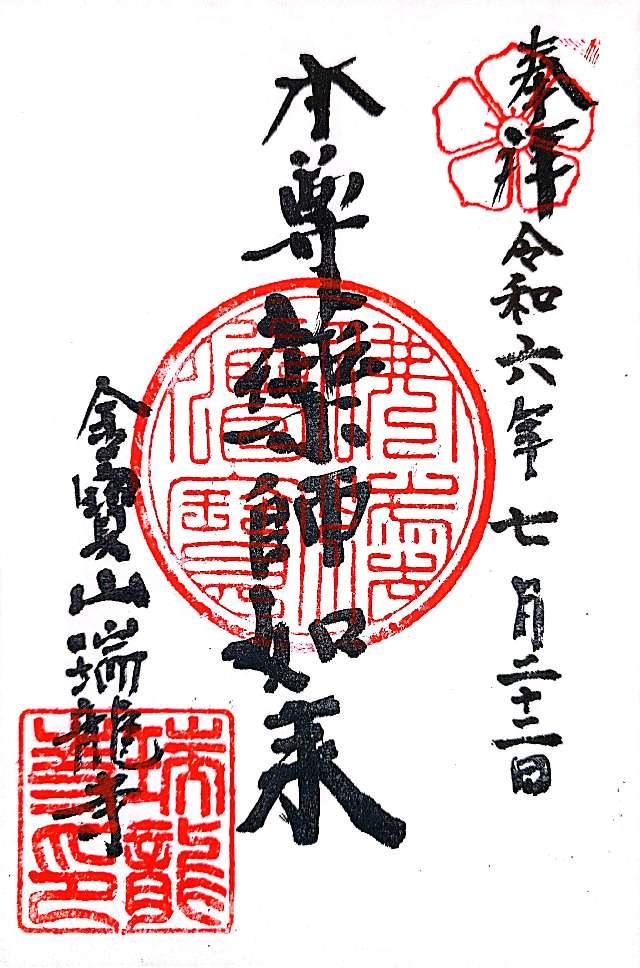 奉拝 令和六年七月二十二日
本尊薬師如来
金寶山瑞龍寺
瑞龍寺印